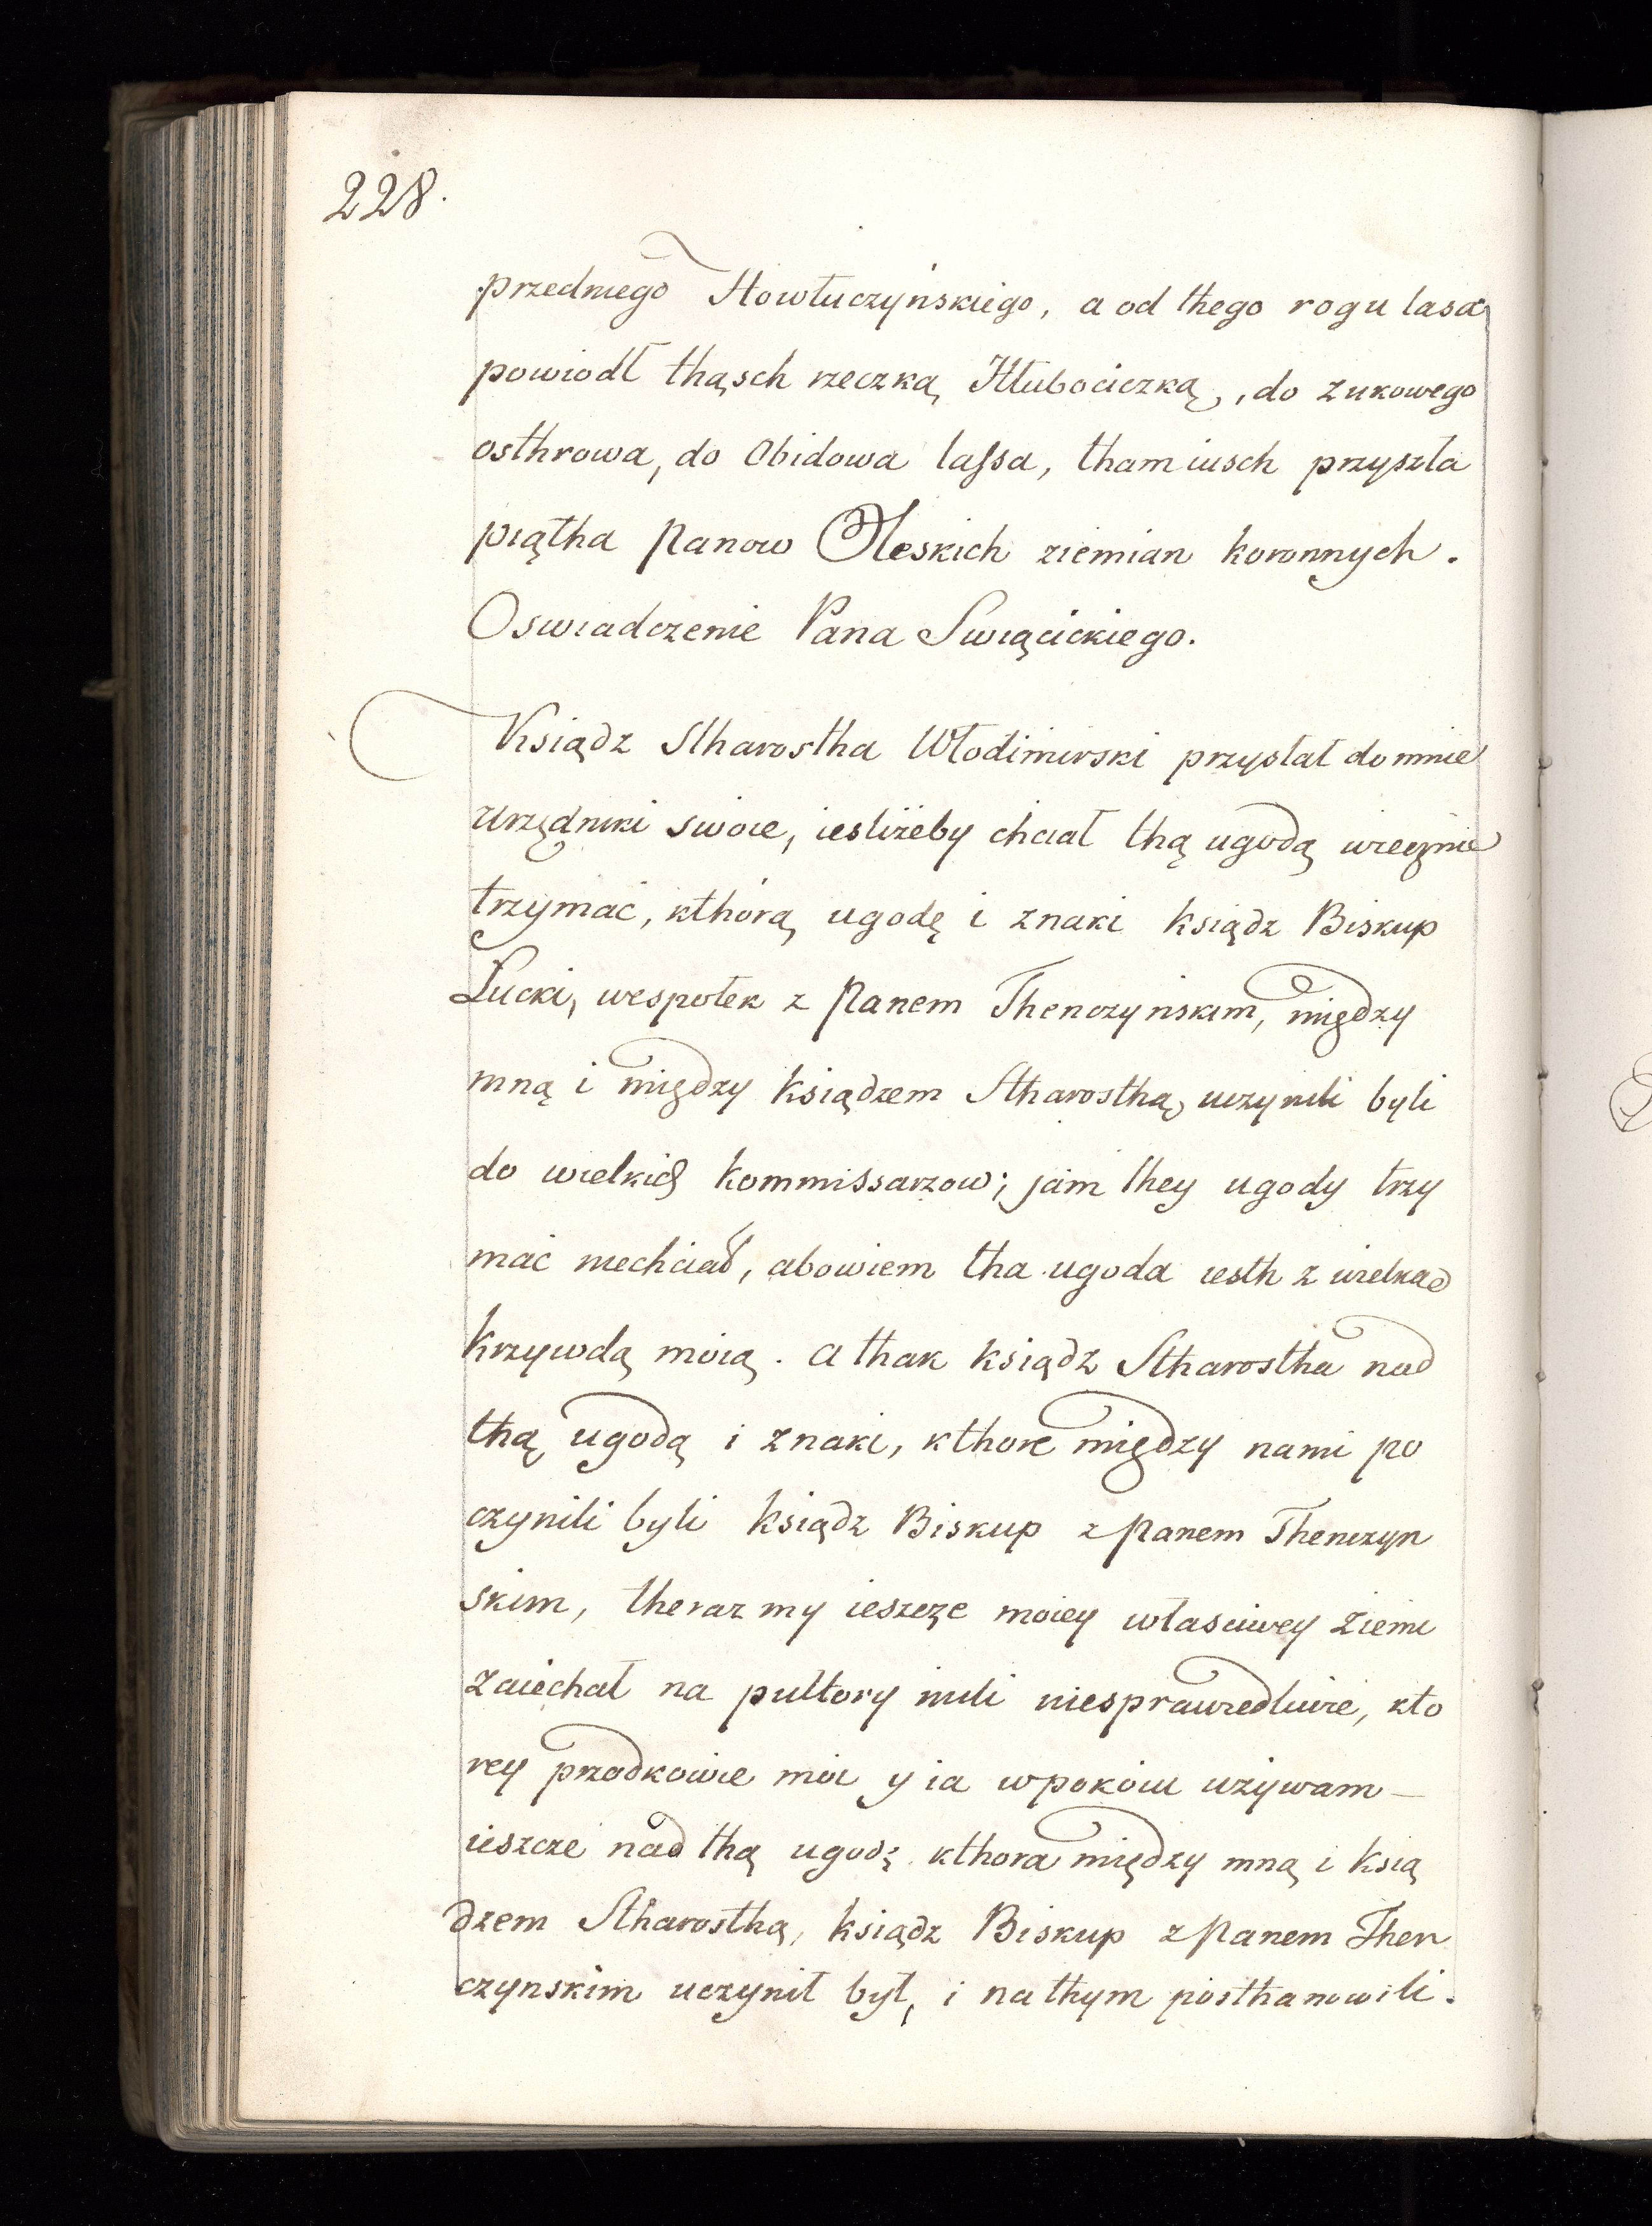 228.
przedniego Howłuczyńskiego, a od thego rogu lasa
powiodł thąsch rzeczką Hłubociczką, do zukowego
osthrowa, do Obidowa lassa, tham iusch przyszła
piątha Panow Oleskich ziemian koronnych.
Oswiadczenie Pana Swiącickiego.
Ksiądz Stharostha Włodimirski przysłał do mnie
urzędniki swoie, iesliżeby chciał thą ugodą wiecznie
trzymać, kthorą ugodę i znaki ksiądz Biskup
Łucki, wespołek z Panem Thenczyńskim, między
mną i między ksiądzem Stharosthą, uczynili byli
do wielkich kommissarzow; jam they ugody trzy
mać niechciał, abowiem tha ugoda iesth z wielką
krzywdą moią. A thak ksiądz Stharostha nad
thą ugodą i znaki, kthore między nami po
czynili byli ksiądz Biskup z Panem Thenczyn
skim, theraz my ieszcze moiey własciwey ziemi
zaiechał na pułtory mili niesprawiedliwie, kto
rey przodkowie moi y ia wpokoiu używam —
ieszcze nad thą ugodę kthora między mną i ksią
dzem Stharosthą, ksiądz Biskup z Panem Then
czynskim uczynił był, i na thym posthanowili.